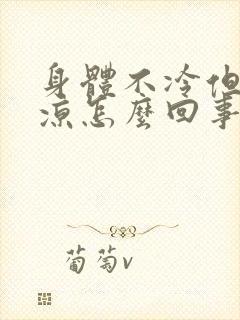 身體不冷但
涼怎麼回事
葡萄v